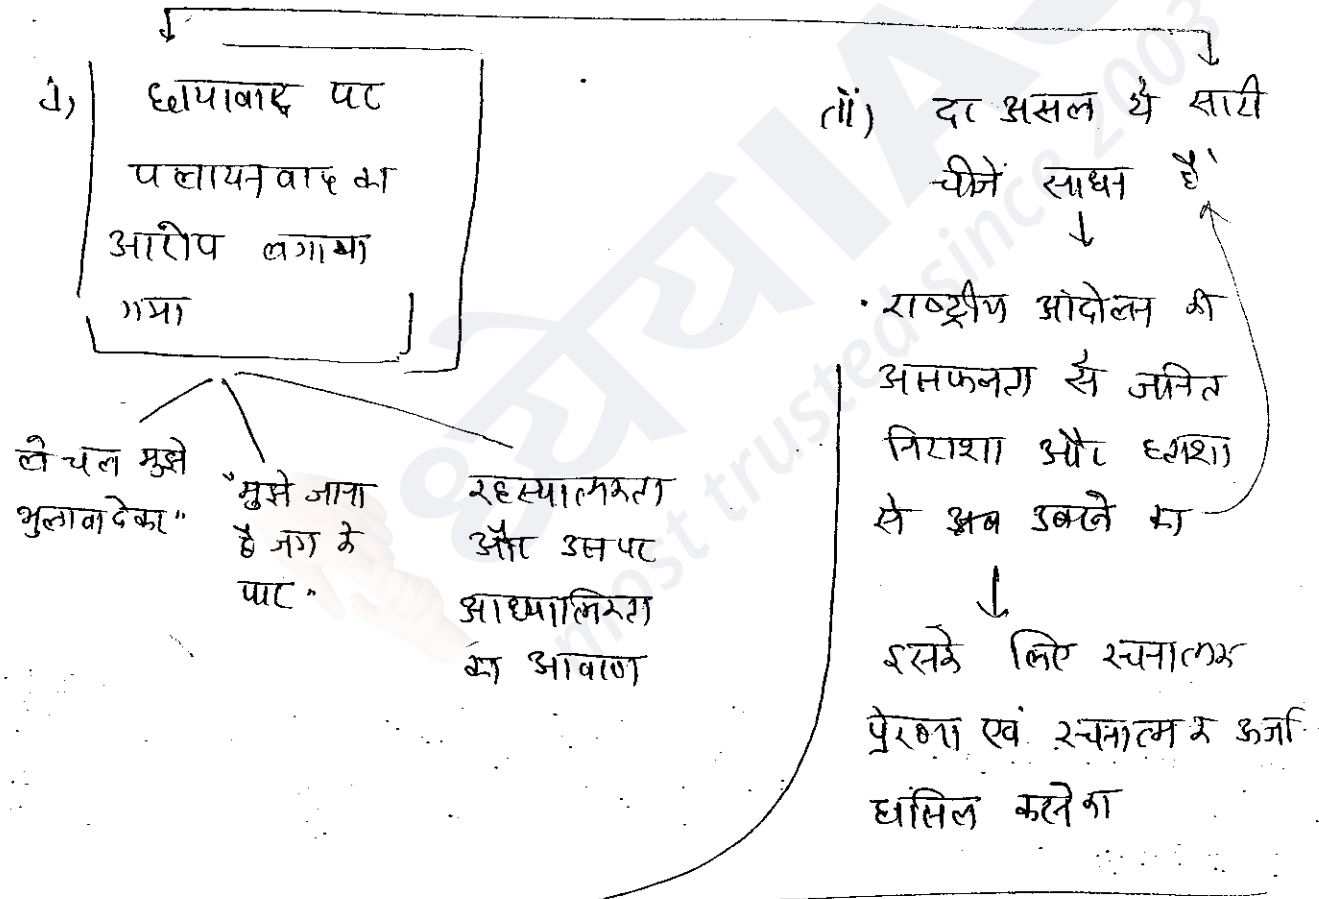 i)
छायावाद पर
पलायनवाद का
आरोप लगाया
गया
ले चल मुझे
भुलावा देकर"
"मुझे जाना
है जग के
पार"
रहस्यात्मकता
और उस पर
आध्यात्मिकता
का आवरण
(ii) दर असल ये सारी
चीजें साधन हैं
• राष्ट्रीय आंदोलन की
असफलता से जनित
निराशा और हताशा
से उबरने का
इसके लिए रचनात्मक
प्रेरणा एवं रचनात्मक ऊर्जा
हासिल करने का
ध्येय IAS
most trusted since 2003